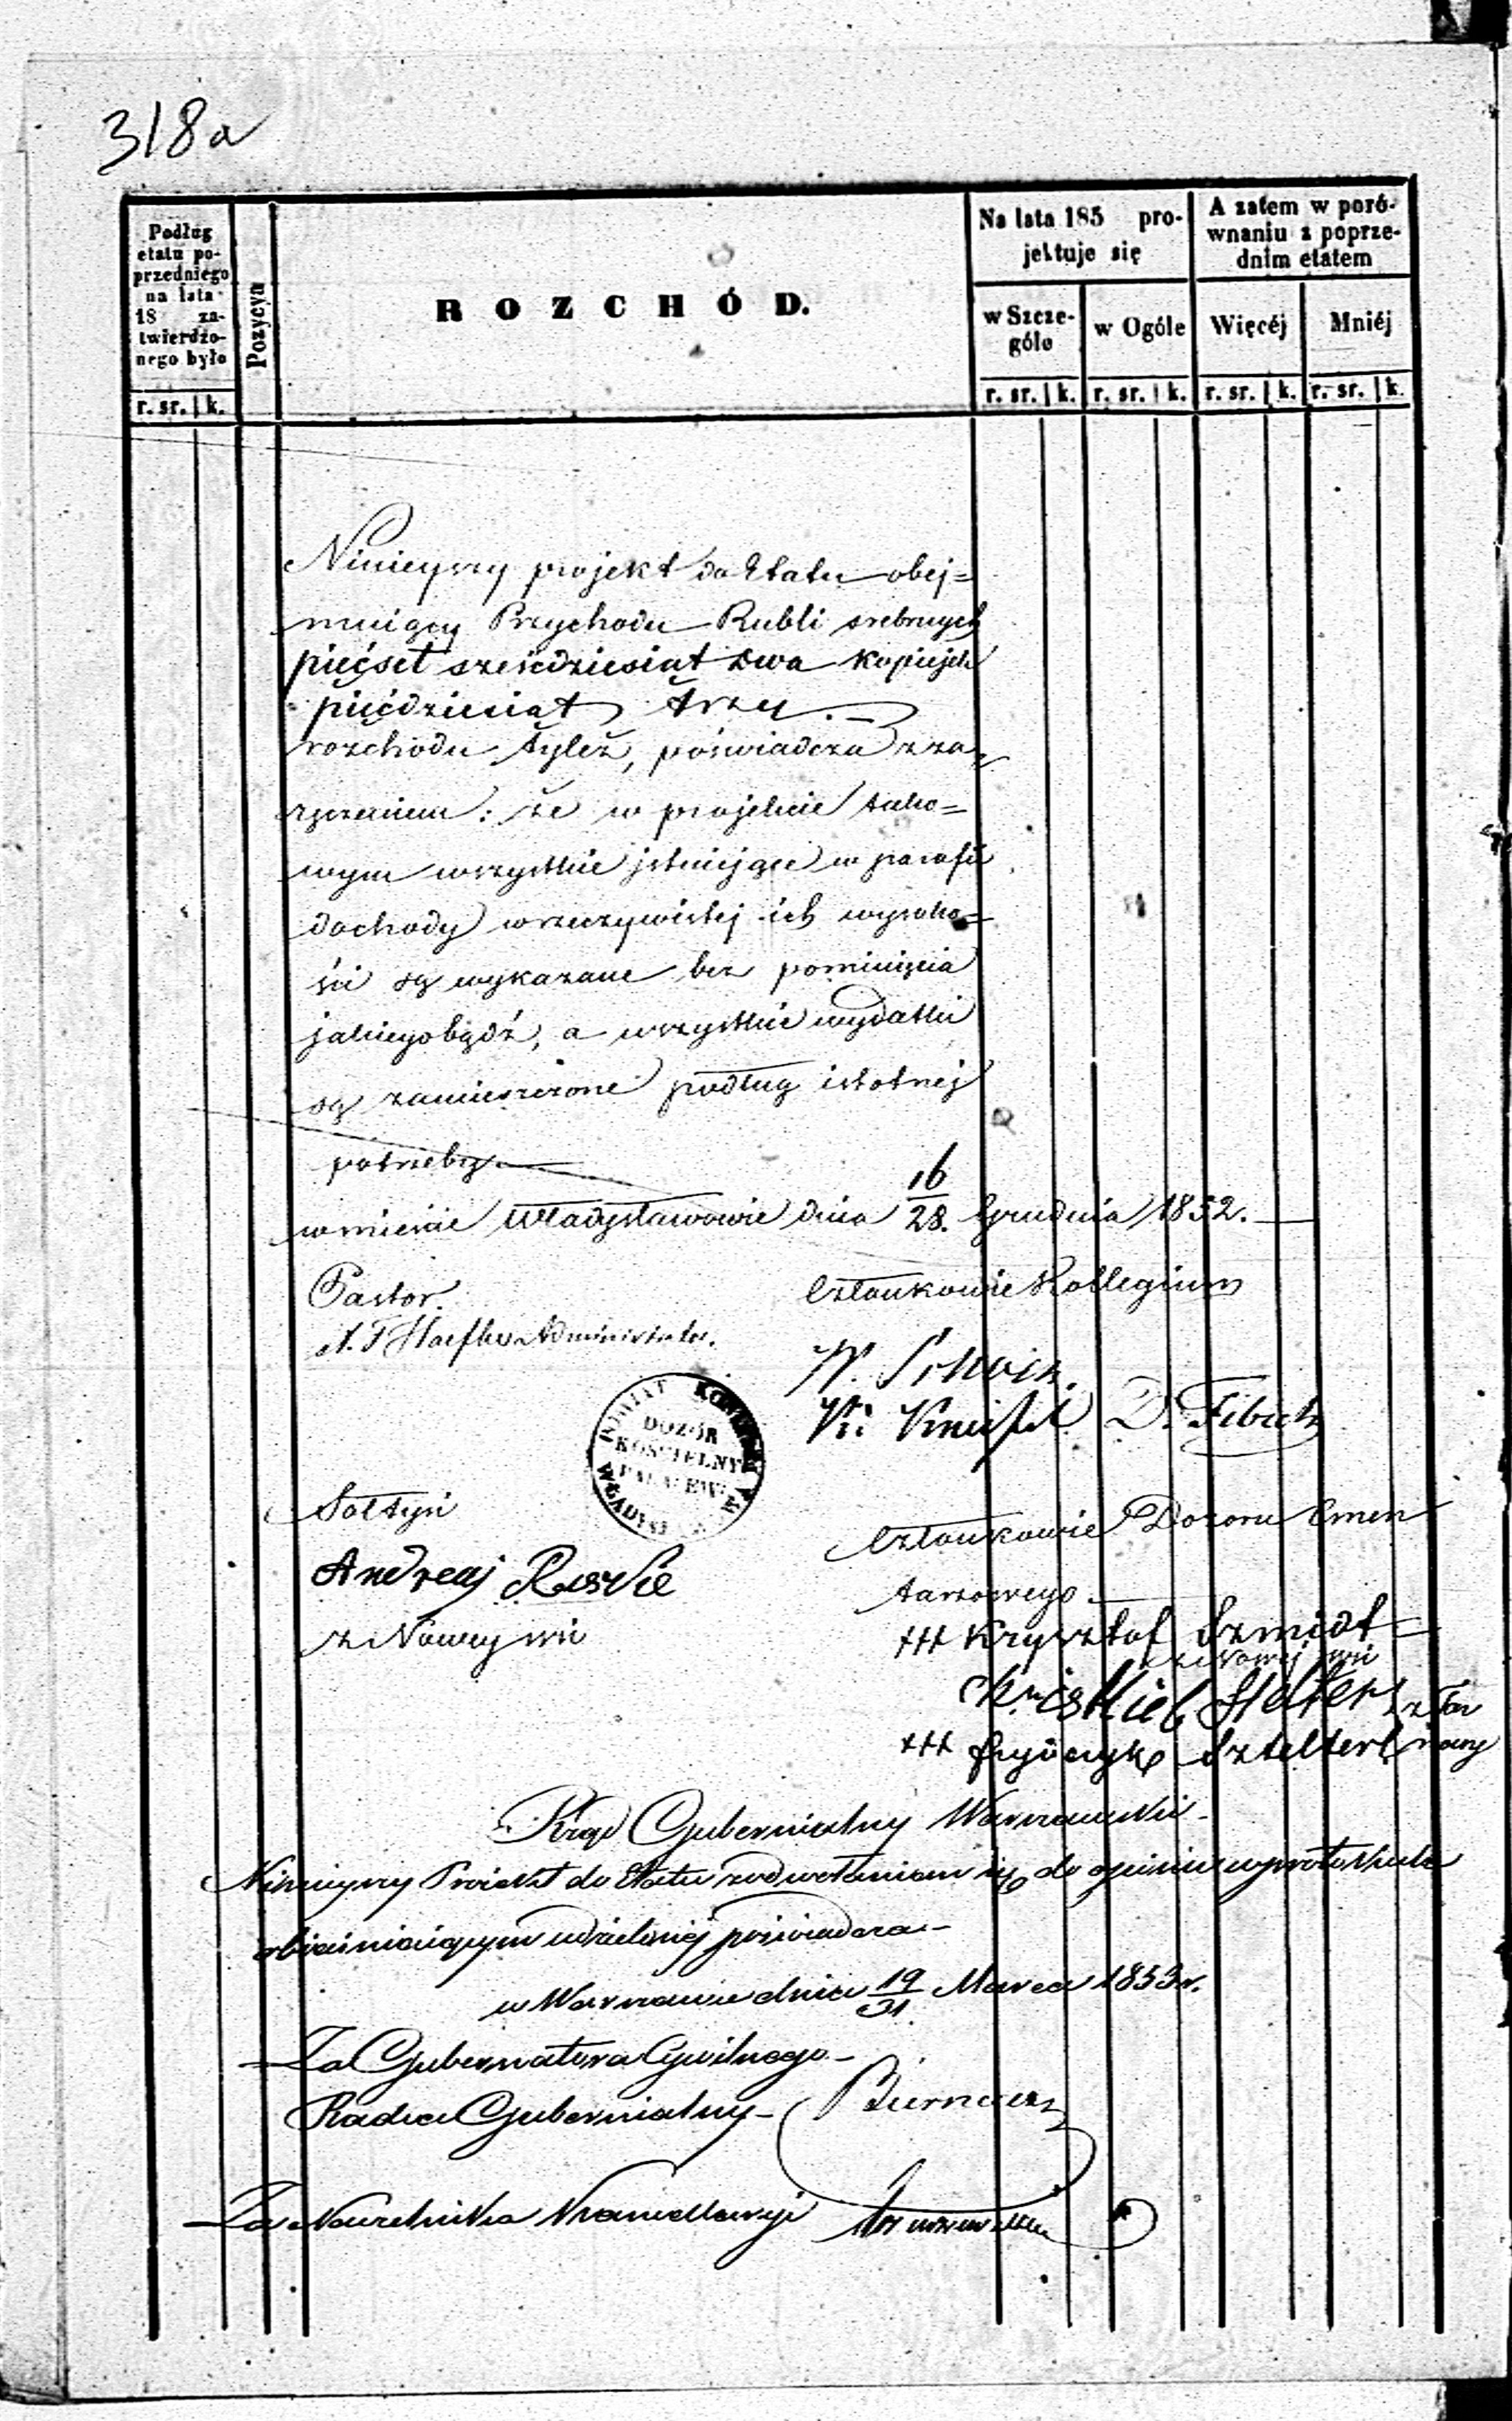 318a
Podług
etatu po-
przedniego
na lata
18 za-
twierdzo-
nego było
r. sr. k.
Pozycya
ROZCHÓD.
Na lata 185 pro-
jektuje się
w Szcze-
góle
w Ogóle
r. sr. k. r. sr. k.
A zatem w poró-
wnaniu z poprze-
dnim etatem
Więcéj Mniéj
r. sr. k. r. sr. k.
Niniejszy projekt do Etatu obej=
mujący Przychodu Rubli srebrnych
pięćset sześćdziesiąt dwa kopiejek
pięćdziesiąt trzy.
rozchodu tyleż, poświadcza z za=
ręczeniem: że w projekcie tako=
wym wszystkie istniejące w parafii
dochody w rzeczywistej ich wysoko=
ści są wykazane bez pominięcia
jakiegobądź, a wszystkie wydatki
są zamieszczone podług istotnej
potrzeby.
w mieście Władysławowie dnia 16/28. Grudnia 1852.
Pastor.
Administrator.
Członkowie Kollegium
D. Fibich
DOZÓR
KOŚCIELNY
Sołtys
Andrzej
z Nowej wsi
Członkowie Dozoru Cmen
tarzowego.
+++ Krysztof Szmidt
z Nowej wsi
+++ Frydryk
Rząd Gubernialny Warszawski.
Niniejszy Projekt do Etatu z odwołaniem się do opinii w protokule
obiaśniającym udzielonéj poświadcza
w Warszawie dnia 19/31 Marca 1853 r.
Za Gubernatora Cywilnego
Radca Gubernialny
Za Naczelnika Kancellaryi